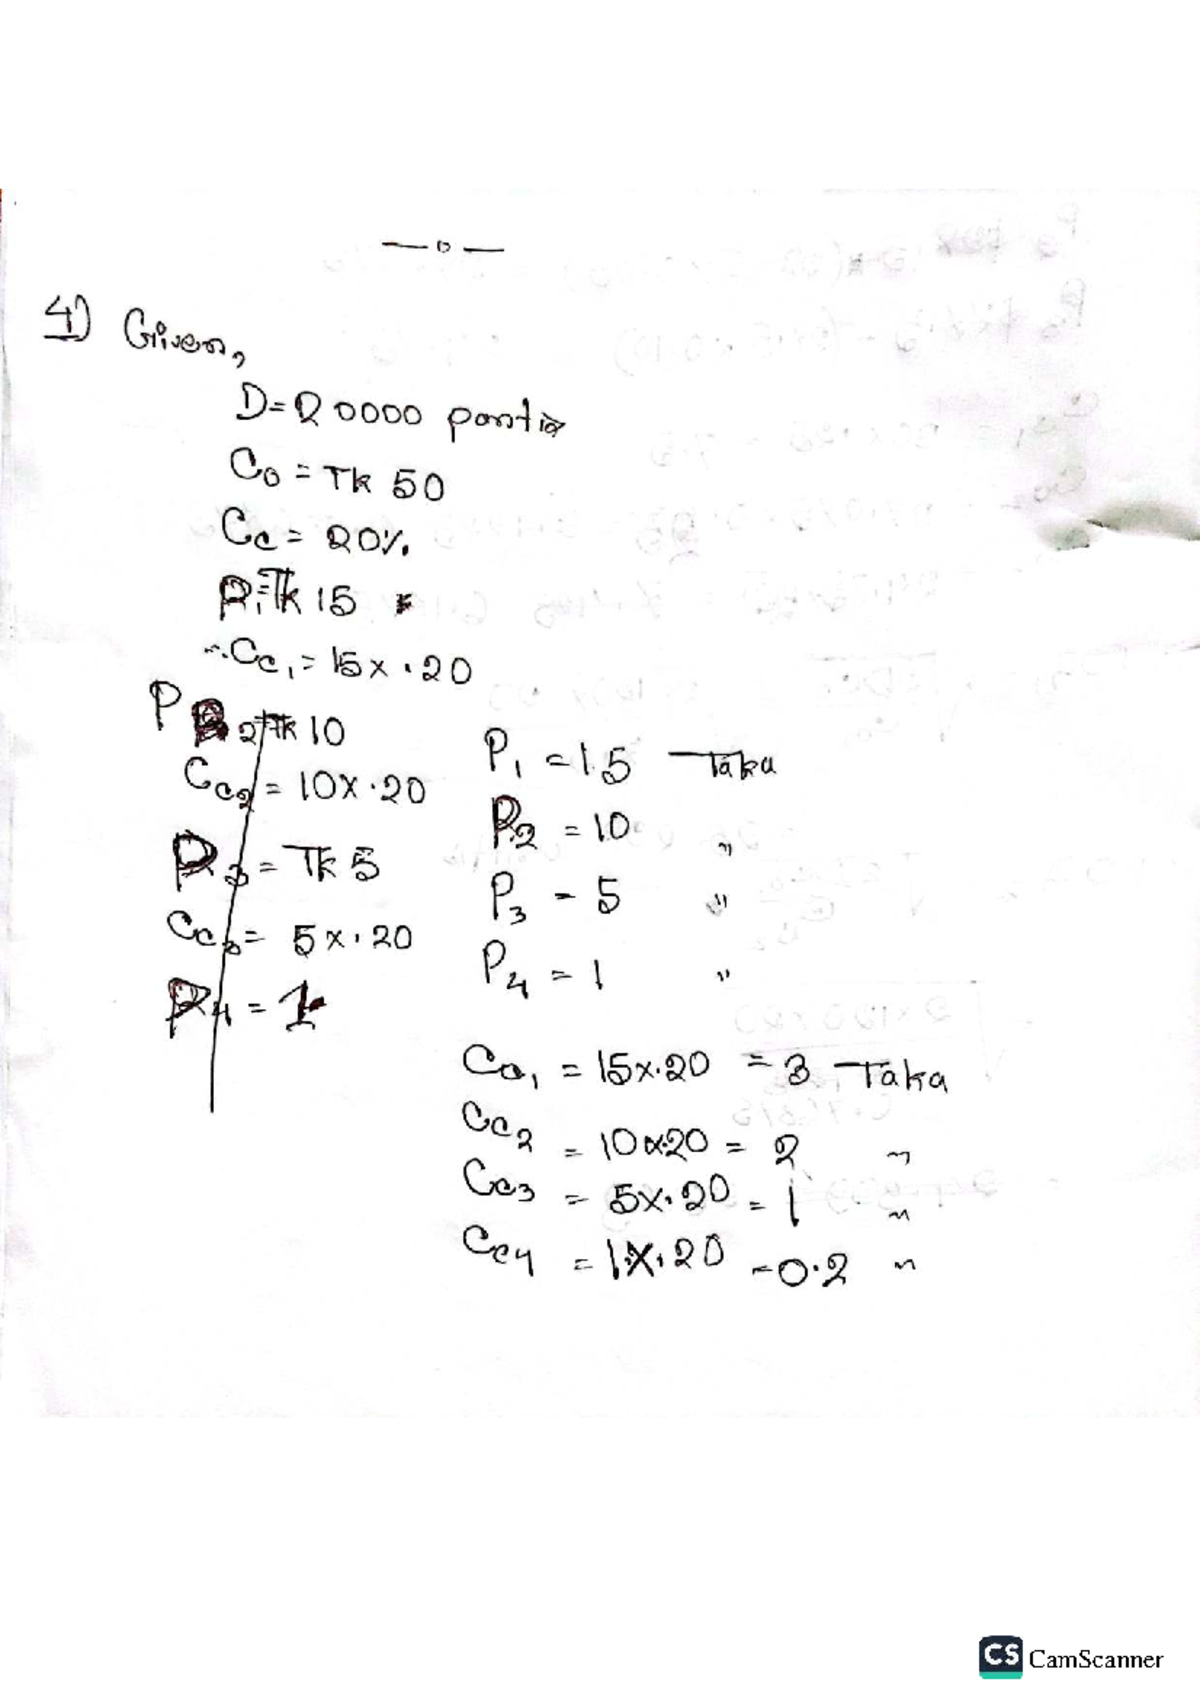 — 0 —
4) Given,
D = 20000
C₀ = Tk 50
Cc = 20%
P₁ = Tk 15
∴ Cc₁ = 15 x .20
P
2 = Tk 10
Cc2 = 10x .20
P3 = Tk 5
Cc3 = 5x .20
P4 = 1
P₁ = 15 Taka
P2 = 10 "
P3 = 5 "
P4 = 1 "
Cc₁ = 15x.20 = 3 Taka
Cc2 = 10x.20 = 2 "
Cc3 = 5x.20 = 1 "
Cc4 = 1x.20 = 0.2 "
CS CamScanner